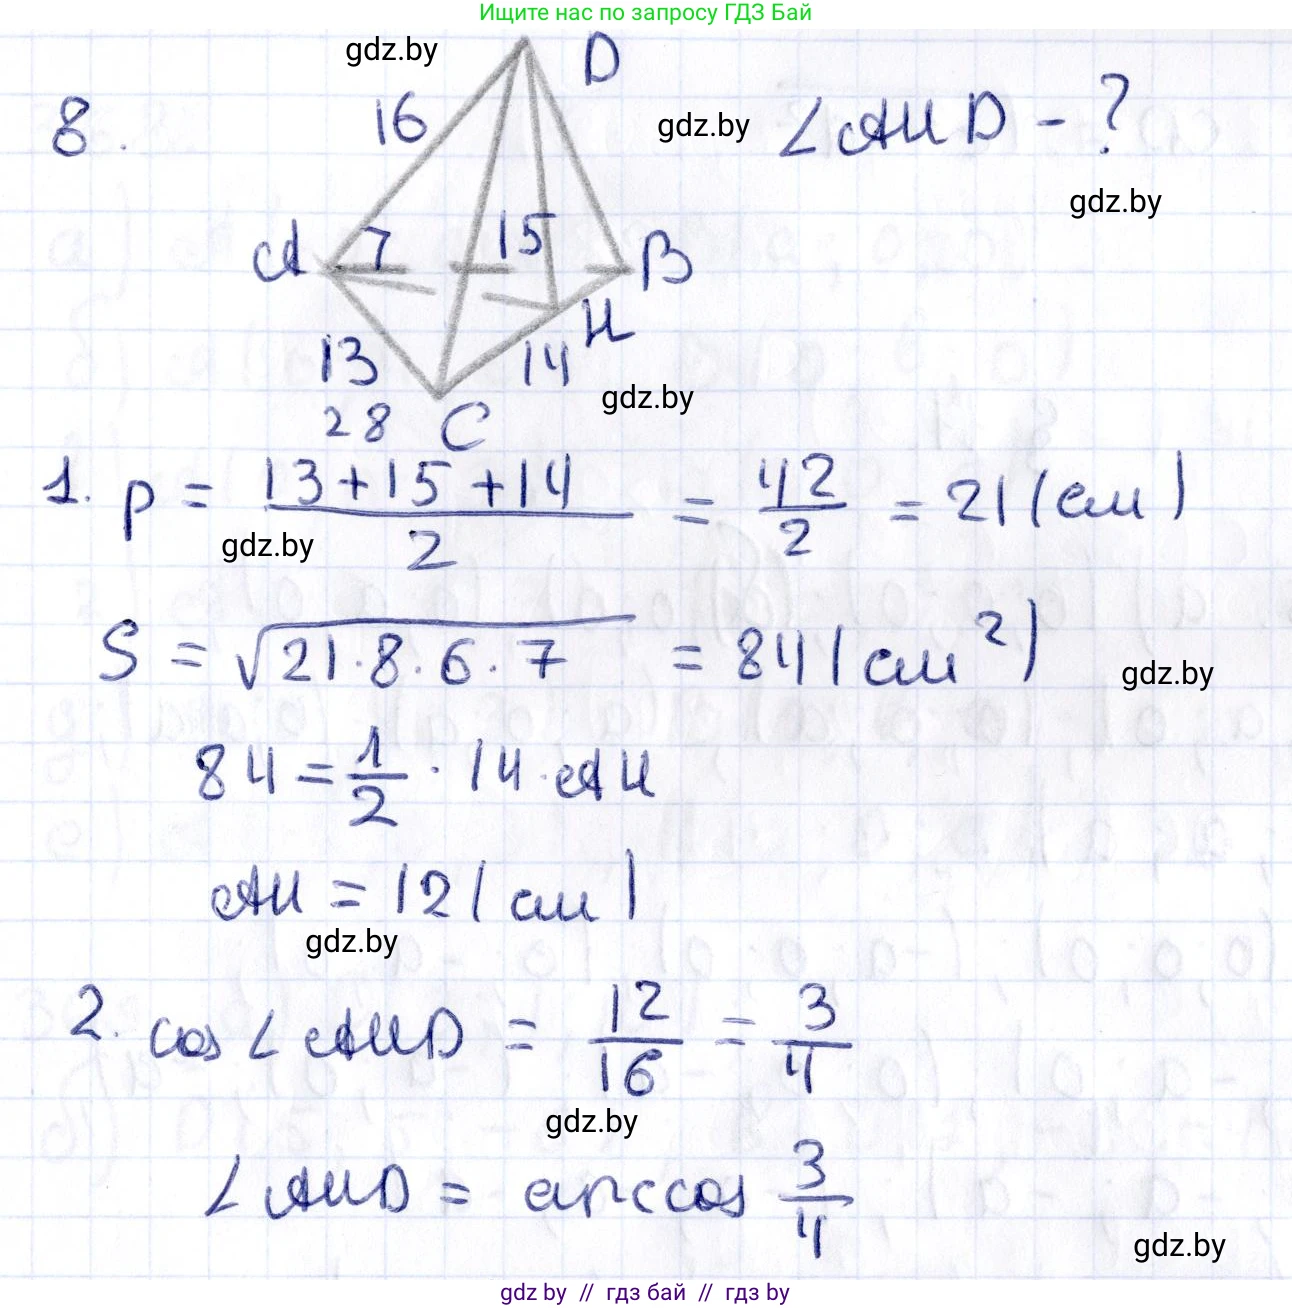 Ищите нас по запросу ГДЗ Бай
gdz.by
D
8.
16
gdz.by
∠AHD - ?
gdz.by
A
7
15
B
H
13
14
gdz.by
28
C
1. p = (13+15+14)/2 = 42/2 = 21 (см)
gdz.by
S = √(21·8·6·7) = 84 (см²)
gdz.by
84 = 1/2 · 14 · AH
AH = 12 (см)
gdz.by
2. cos ∠AHD = 12/16 = 3/4
gdz.by
∠AHD = arccos 3/4
gdz.by
gdz by // гдз бай // гдз by